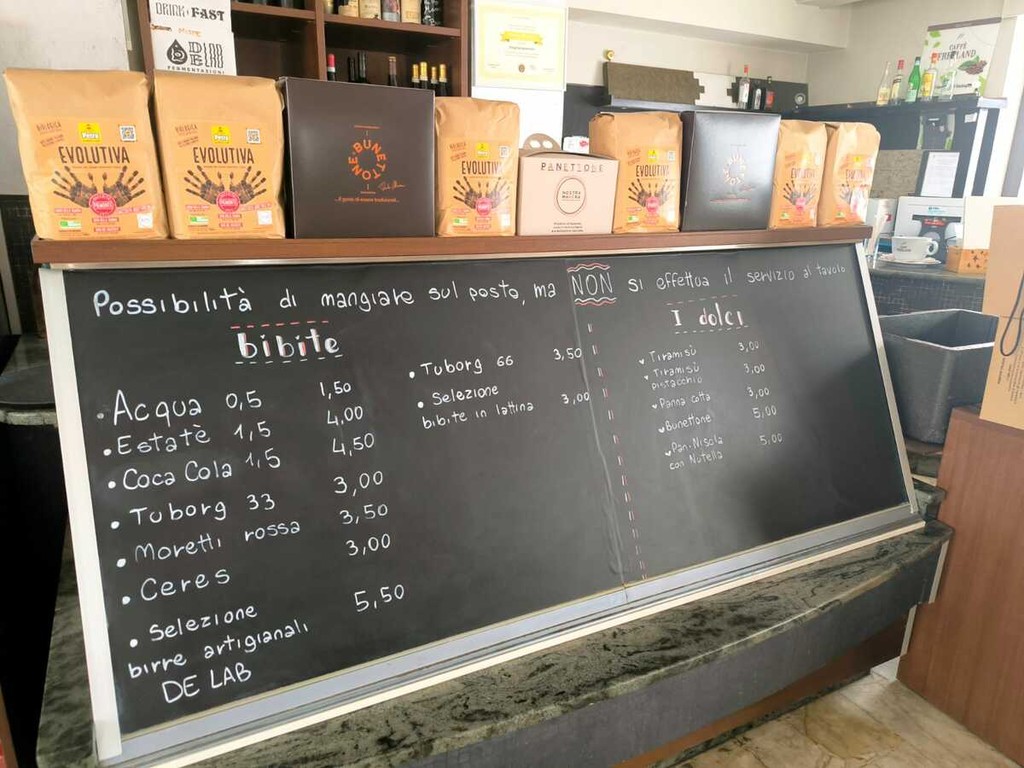 DRINK & FAST
DE LAB
FERMENTAZIONI
Petra
EVOLUTIVA
Petra
EVOLUTIVA
BUNETTONE
EVOLUTIVA
PANETTONE
NOSTRA MADRE
EVOLUTIVA
CAFFÈ
Possibilità di mangiare sul posto, ma NON si effettua il servizio al tavolo
bibite
• Acqua 0,5 1,50
• Estatè 1,5 4,00
• Coca Cola 1,5 4,50
• Tuborg 33 3,00
• Moretti rossa 3,50
• Ceres 3,00
• Selezione 5,50
birre artigianali
DE LAB
• Tuborg 66 3,50
• Selezione
bibite in lattina 3,00
I dolci
Tiramisù 3,00
Tiramisù 3,00
pistacchio
Panna cotta 3,00
Bunettone 5,00
Pan-Nisola 5,00
con Nutella